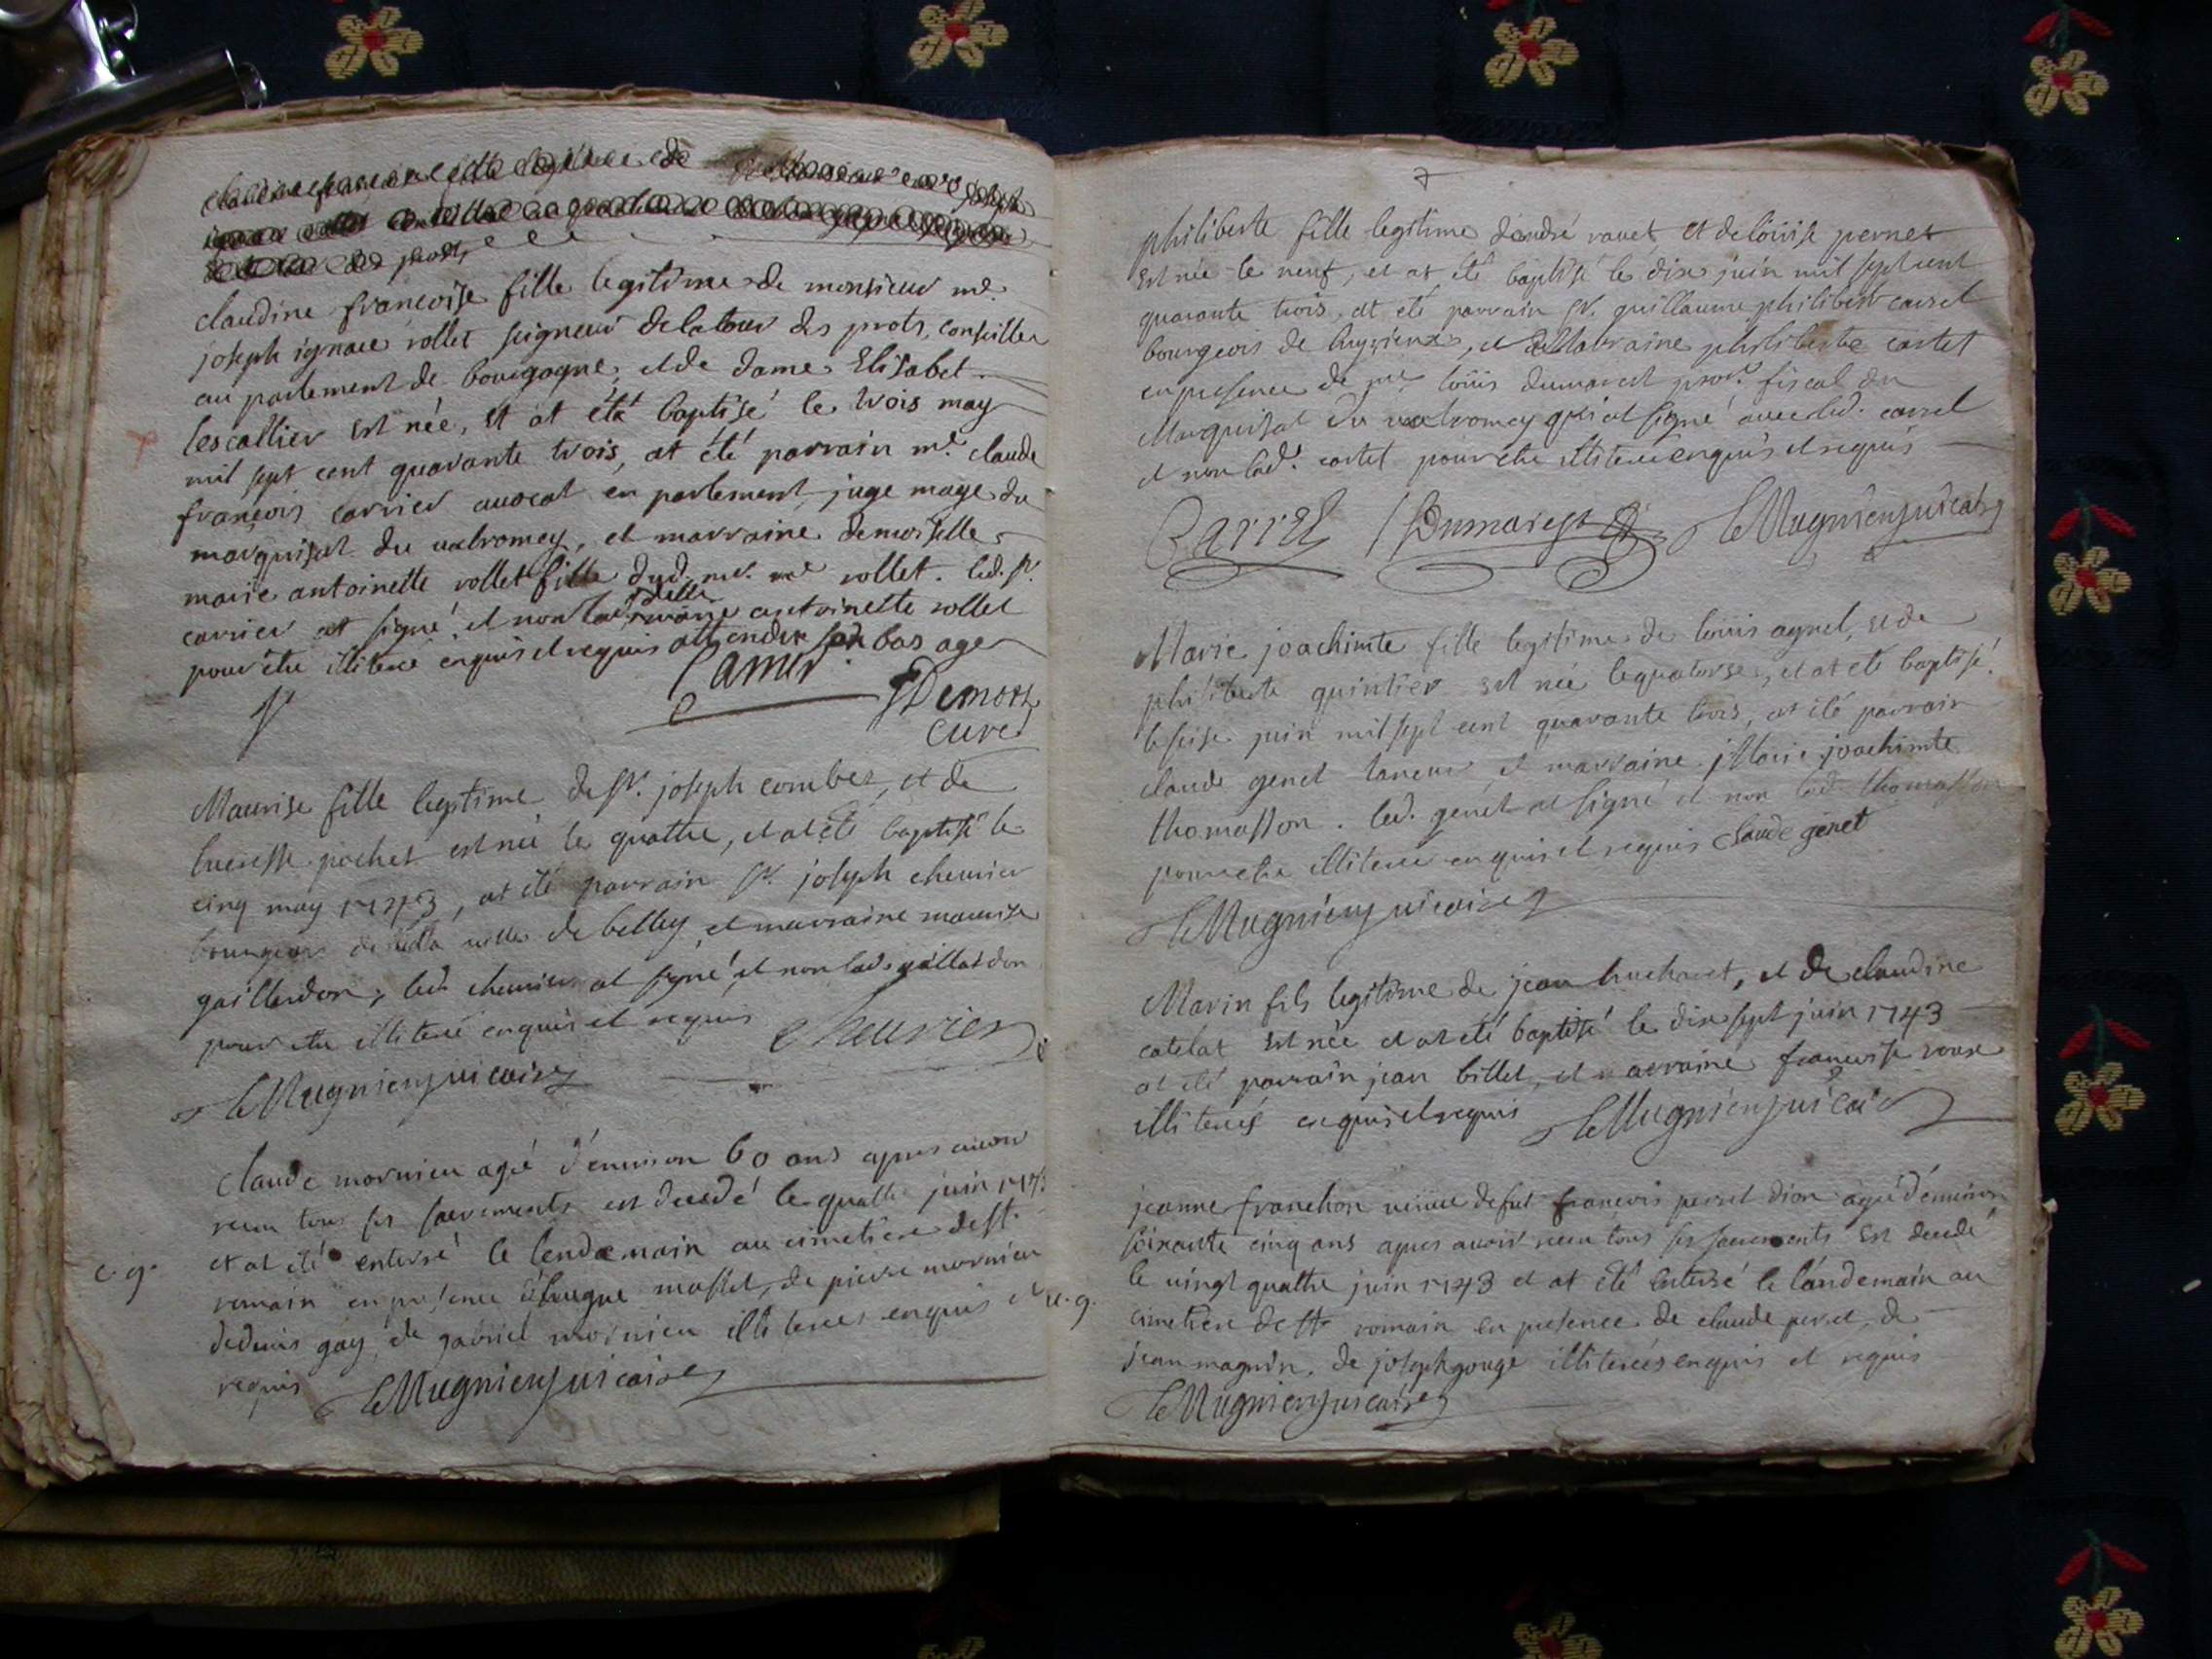 claudine francoise fille legitime de
claudine francoise fille legitime de monsieur me.
joseph ignace rollet seigneur delatour des prots, conseiller
au parlement de bourgogne, et de dame Elisabet
lescallier est née, et at été baptisé le trois may
mil sept cent quarante trois, at été parrain me. claude
françois carrier auocat en parlement, juge mage du
marquisat du valromey, et marraine demoiselle
marie antoinette rollet fille dud. mr. me rollet. led. sr.
carrier at signé, et non lad. delle marie antoinette rollet
pour être illiteré enquis et requis attendu son bas age
Carrier
Demorz
curé
Maurise fille legitime de sr. joseph combet, et de
lucresse pochet est née le quattre, et at été baptisé le
cinq may 1743, at été parrain sr. joseph cheurier
bourgeois de la ville de belley, et marraine maurise
gaillardon, led. cheurier at signé, et non lad. gaillardon
pour etre illiteré enquis et requis
Cheurier
LeMugnier vicaire
claude mornieu agé d'enuiron 60 ans apres auoir
receu tous ses sacrements est decedé le quattre juin 1743
et at été enterré le lendemain au cimetiere de st.
romain en presence d'hugue masset, de pierre mornieu
c. g.
dedenis gay, de gabriel mornieu illiterés enquis et
requis
LeMugnier vicaire
7
philiberte fille legitime d'andré rauet et de loüise pernet
est née le neuf, et at été baptisé le dix juin mil sept cent
quarante trois, at été parrain sr. guillaume philibert carrel
bourgeois de , et Marraine philiberte costet
en presence de me loüis dumarest procr. fiscal du
Marquisat du valromey qui at signé auec led. carrel
et non lad. costet pour etre illiteré enquis et requis
Carrel
Dumarest
LeMugnier vicaire
Marie joachimte fille legitime de loüis agnel, et de
philiberte quintier est née le quatorse, et at été baptisé
le seise juin mil sept cent quarante trois, at été parrain
claude genet taneur et marraine Marie joachimte
thomasson. led. genet at signé et non lad. thomasson
pour etre illiteré enquis et requis Claude genet
LeMugnier vicaire
Marin fils legitime de jean huchard, et de claudine
catelat est née et at été baptisé le dix sept juin 1743
at été parrain jean billet, et marraine françoise roux
illiterés enquis et requis LeMugnier vicaire
jeanne franchon veuue de fut françois perret dion agé d'enuiron
soixante cinq ans apres auoir receu tous ses sacrements est decedé
le vingt quattre juin 1743 et at été enterré le landemain au
u. g.
cimetiere de st. romain en presence de claude perret, de
jean magnin, de joseph gouge illiterés enquis et requis
LeMugnier vicaire